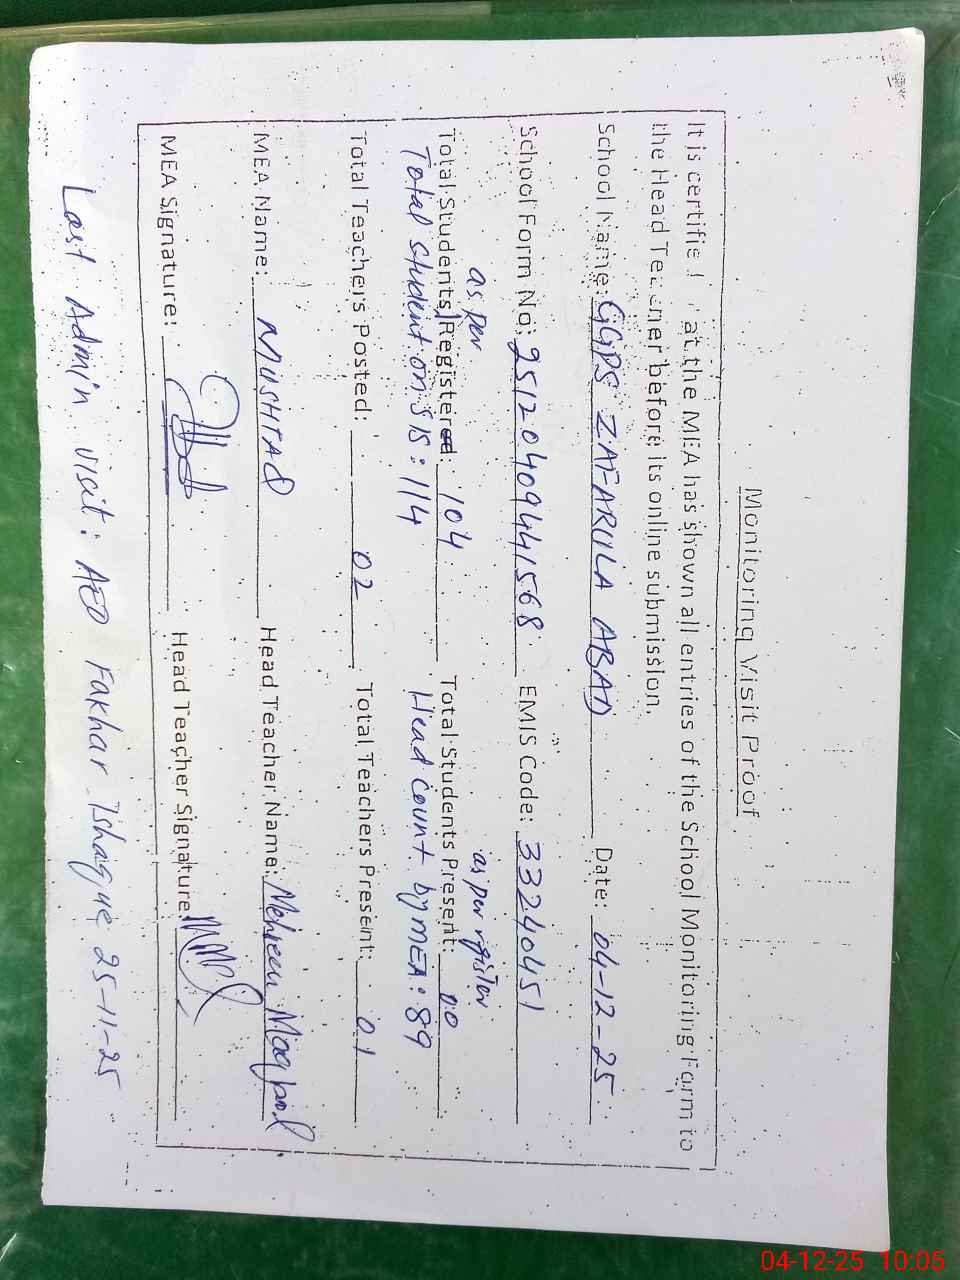 Monitoring Visit Proof
It is certified that the MEA has shown all entries of the School Monitoring Form to
the Head Teacher before its online submission.
School Name: GGPS ZAFARULA ABAD Date: 04-12-25
School Form No: 25120409441568 EMIS Code: 33240451
as per as per rgister
Total Students Registered: 104 Total Students Present: 00
Total student on SIS: 114 Head count by MEA: 89
Total Teachers Posted: 02 Total Teachers Present: 01
MEA Name: MUSHTAQ Head Teacher Name: Mehreen Maqbool
MEA Signature: Head Teacher Signature:
Last Admin visit: AEO Fakhar Ishaque 25-11-25
04-12-25 10:05